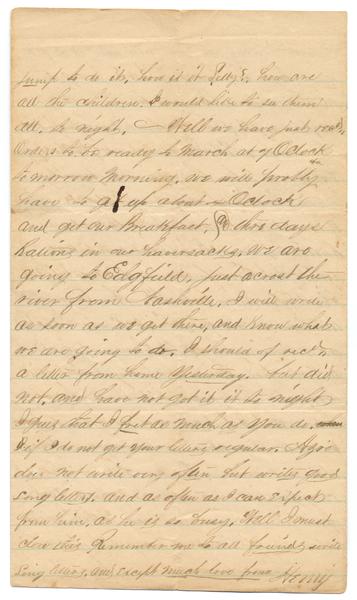 jump to do it, how is it Libby? how are
all the children. I would like to see them
all. to night. Well we have just rec'd
Orders to be ready to march at 7 Oclock
tomorrow morning. we will probly
have to get up about Oclock
and get our Breakfast, & thre days
Rations in our haversacks. We are
going to Edgfield, just acrost the
river from Nashville. I will write
as soon as we get there, and know what
we are going to do. I should of rec'd
a letter from home Yesterday. but did
not. and have not got it to night
I guess that I fret as much as you do
if I do not get your letters regular.
does not write very often but writes good
long letters. and as often as I can expect
from him, as he is so busy. Well I must
close this. Remember me to all friends, write
long letters, and except much love from Henry